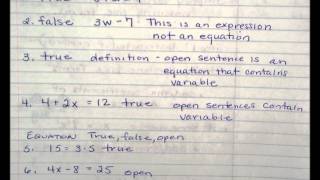 2. false 3w - 7 This is an expression
not an equation
3. true definition - open sentence is an
equation that contains
variable
4. 4 + 2x = 12 true open sentences contain
variable
EQUATION True, false, open
5. 15 = 3·5 true
6. 4x - 8 = 25 open